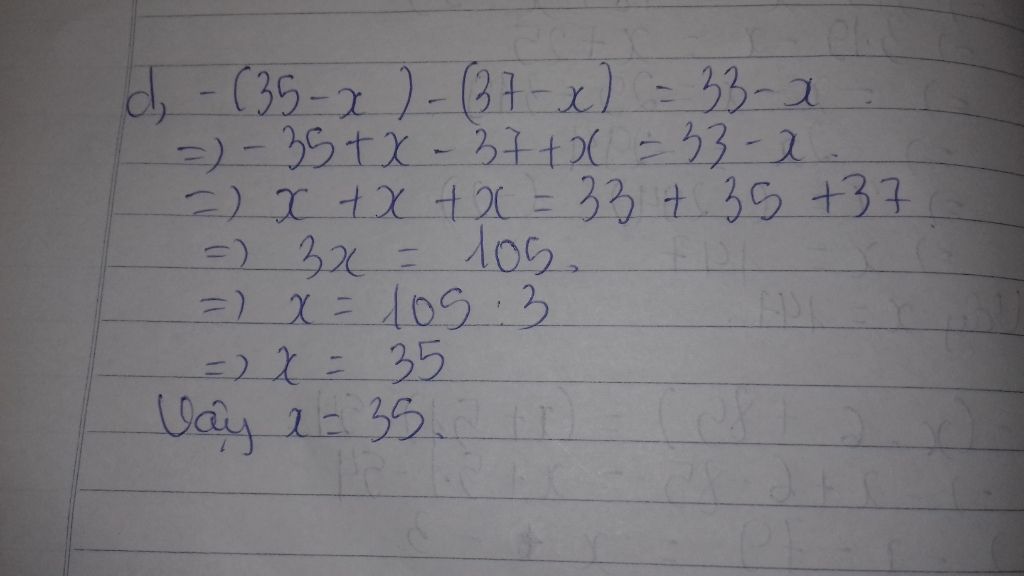 d, -(35-x) - (37-x) = 33-x
=) -35+x - 37+x = 33-x.
=) x +x +x = 33 + 35 +37
=) 3x = 105.
=) x = 105 : 3
=) x = 35
Vậy x = 35.